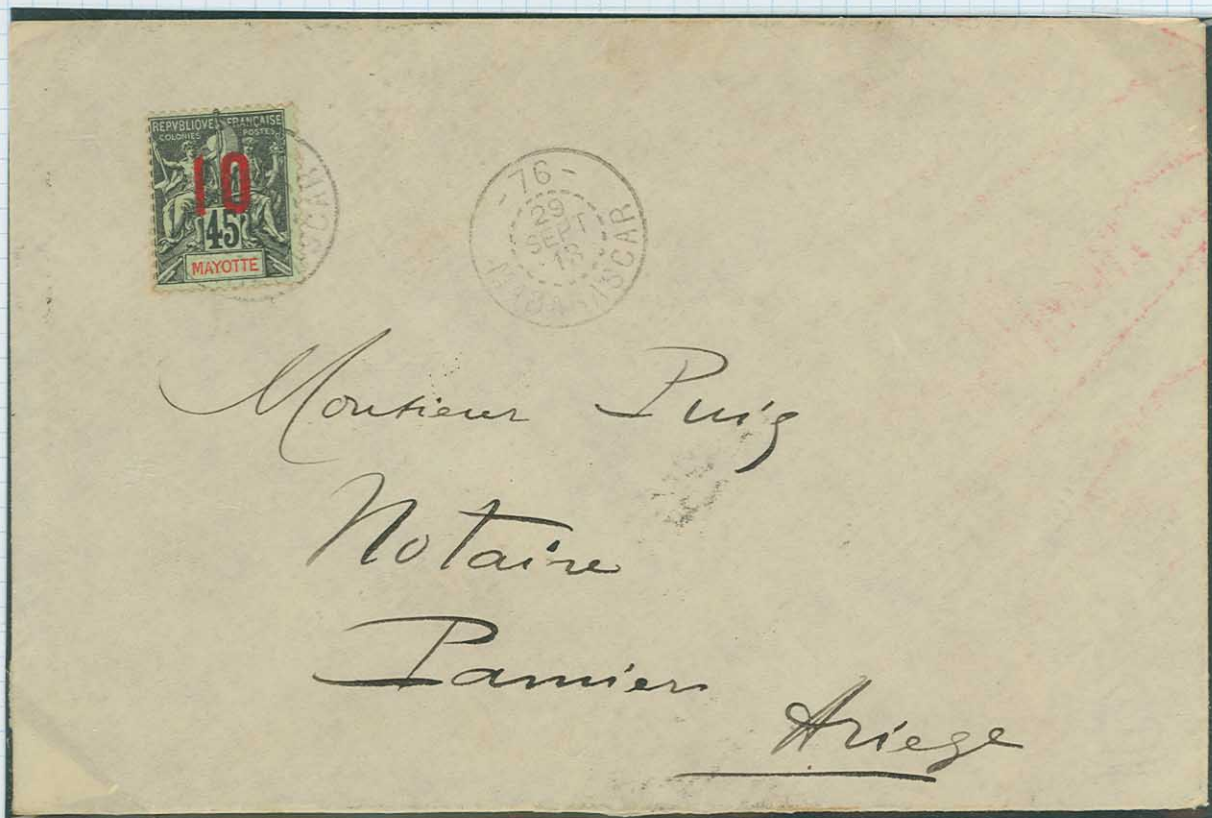 REPVBLIQVE FRANÇAISE
COLONIES POSTES
10
45
MAYOTTE
-76-
29
SEPT
13
Monsieur Puig
Notaire
Pamiers
Ariege